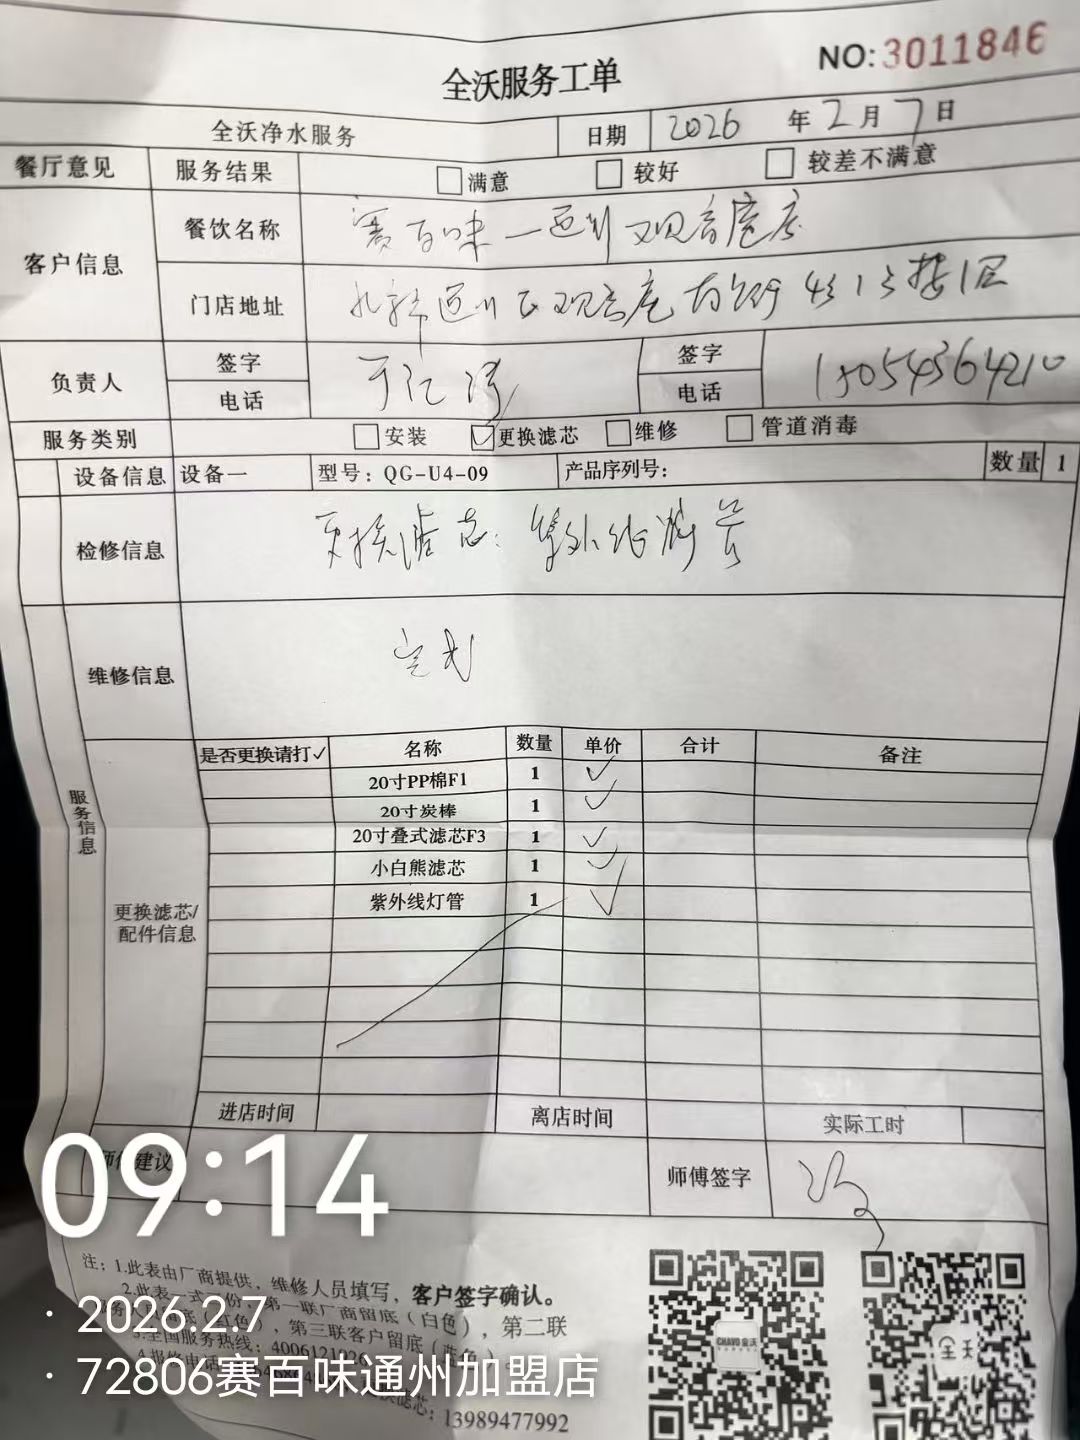 NO: 3011846
全沃服务工单
全沃净水服务 日期 2026 年 2 月 7 日
餐厅意见 服务结果 满意 较好 较差不满意
客户信息 餐饮名称 赛百味一通州观音庵店
门店地址 北京市通州区观音庵 4号1号楼1层
负责人 签字 签字
电话 电话 18054364210
服务类别 安装 ✓更换滤芯 维修 管道消毒
设备信息 设备一 型号：QG-U4-09 产品序列号： 数量 1
检修信息 更换滤芯：紫外线灯管
维修信息 完成
服务信息
是否更换请打✓ 名称 数量 单价 合计 备注
20寸PP棉F1 1 ✓
20寸炭棒 1 ✓
20寸叠式滤芯F3 1 ✓
小白熊滤芯 1 ✓
紫外线灯管 1 ✓
更换滤芯/
配件信息
进店时间 离店时间 实际工时
师傅建议 师傅签字
09:14
注：1.此表由厂商提供，维修人员填写，客户签字确认。
2.此表一式 份，第一联厂商留底（白色），第二联
留底（红色），第三联客户留底（蓝色）。
3.全国服务热线：400612192
4.报修电话
滤芯：13989477992
· 2026.2.7
· 72806赛百味通州加盟店
CHAVO全沃
全沃